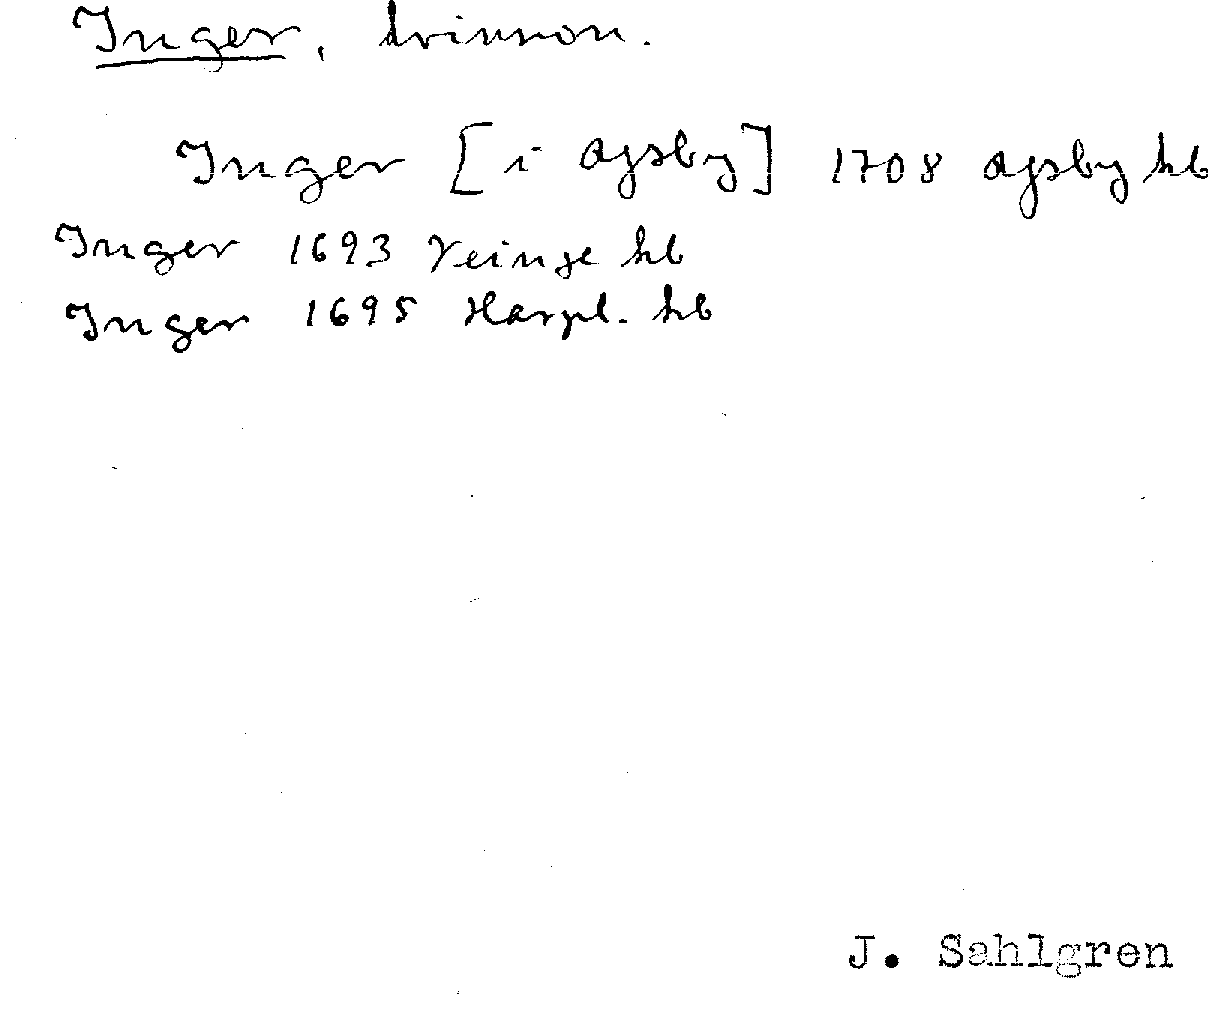 Inger, kvinnon.
Inger [i Ajsby] 1708 Ajsby hb
Inger 1693 Veinge hb
Inger 1695 Harpl. hb
J. Sahlgren